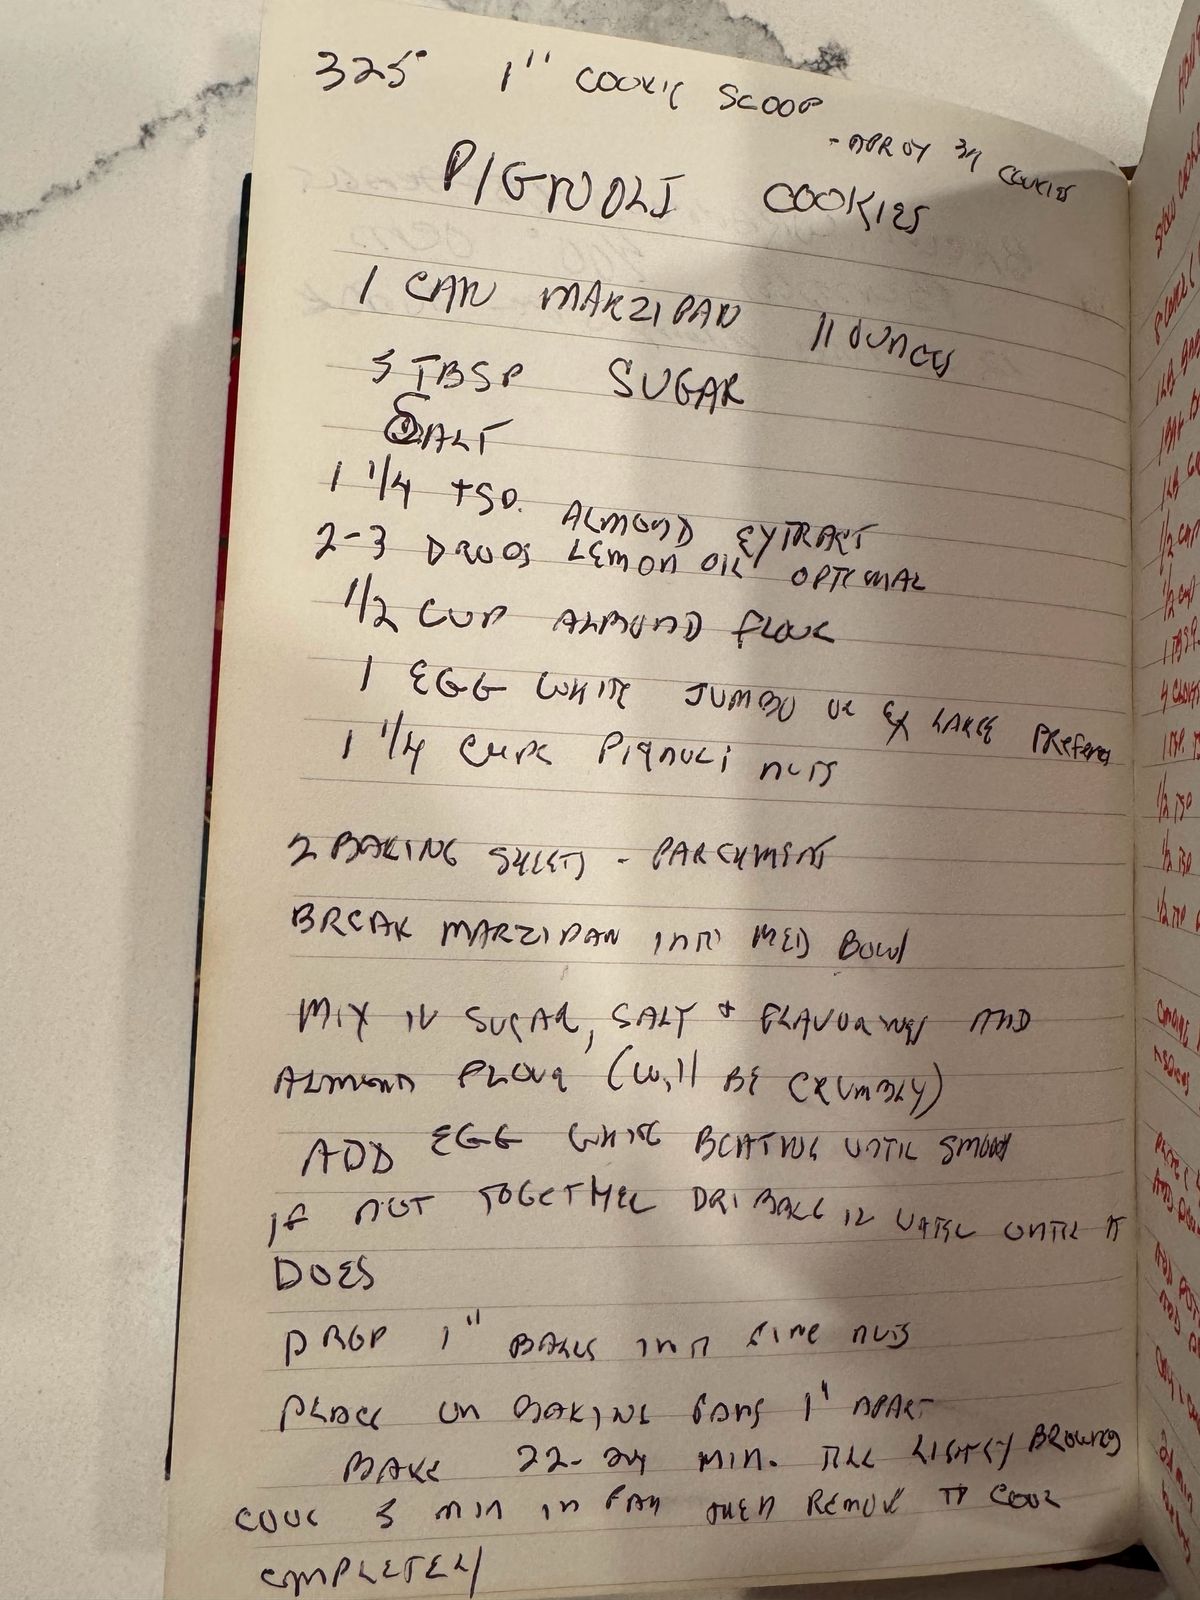 325° 1" COOKIE SCOOP
- APROX COOKIES
PIGNOLI COOKIES
1 CAN MARZIPAN 11 OUNCES
TBSP SUGAR
SALT
1 1/4 TSP. ALMOND EXTRACT
2-3 DROPS LEMON OIL OPTIONAL
1/2 CUP ALMOND FLOUR
1 EGG WHITE JUMBO OR EX LARGE PREFERED
1 1/4 CUPS PIGNOLI NUTS
2 BAKING SHEETS - PARCHMENT
BREAK MARZIPAN INTO MED BOWL
MIX IN SUGAR, SALT + FLAVORINGS AND
ALMOND FLOUR (Will BE CRUMBLY)
ADD EGG WHITE BEATING UNTIL SMOOTH
IF NOT TOGETHER DRIBBLE IN WATER UNTIL IT
DOES
DROP 1" BALLS INTO PINE NUTS
PLACE ON BAKING PANS 1" APART
BAKE 22-24 MIN. TILL LIGHTLY BROWNED
COOL 5 MIN IN PAN THEN REMOVE TO COOL
COMPLETELY